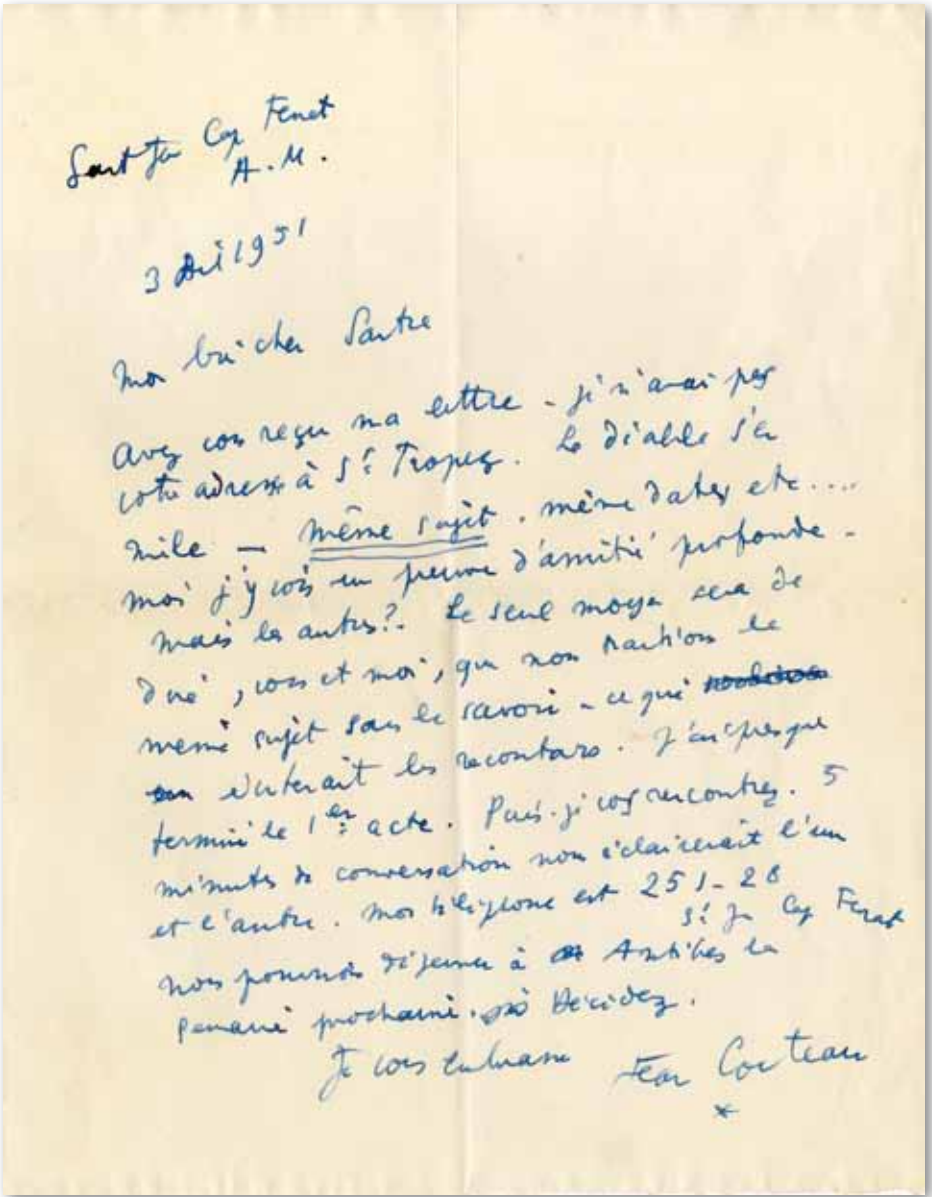 Saint Jean Cap Ferrat
A.M.
3 Avril 1951
Mon bien cher Sartre
Avez vous reçu ma lettre - je n'avais pas
votre adresse à St Tropez. Le diable s'en
mêle — même sujet. même dates etc....
moi j'y vois une preuve d'amitié profonde -
mais les autres?. Le seul moyen sera de
dire, vous et moi, que nous traitions le
même sujet sans le savoir - ce qui
éviterait les racontars. J'ai presque
terminé le 1er acte. Puis-je vous rencontrer. 5
minutes de conversation nous éclairerait l'un
et l'autre. Mon téléphone est 251-28
St Jean Cap Ferrat
nous pourrions déjeuner à Antibes la
semaine prochaine. Décidez.
Je vous embrasse Jean Cocteau
*